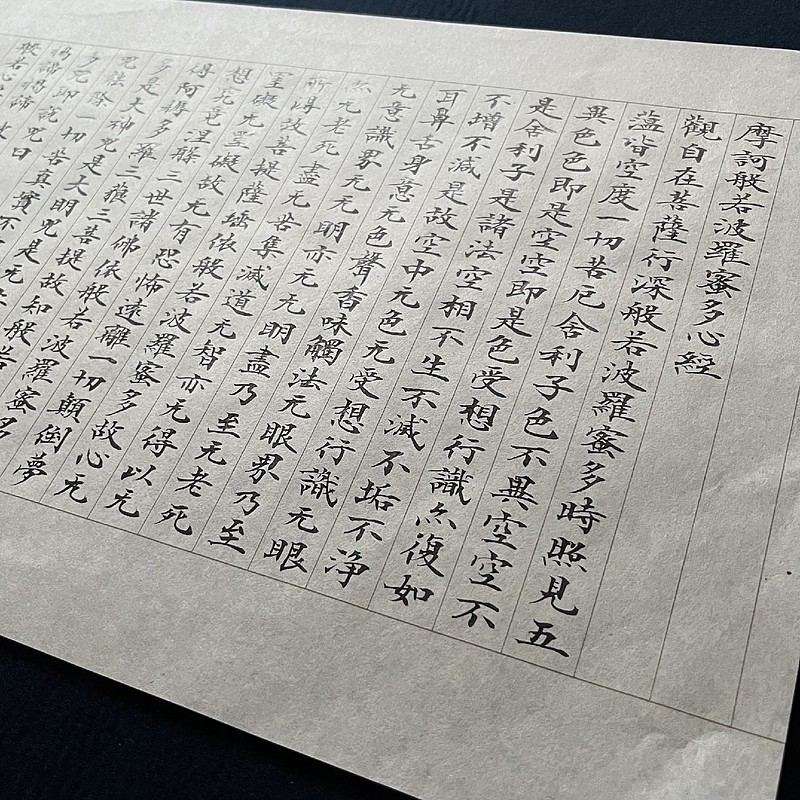 摩訶般若波羅蜜多心經
觀自在菩薩行深般若波羅蜜多時照見五
薀皆空度一切苦厄舍利子色不異空空不
異色色即是空空即是色受想行識亦復如
是舍利子是諸法空相不生不滅不垢不浄
不增不減是故空中无色无受想行識无眼
耳鼻舌身意无色聲香味觸法无眼界乃至
无意識界无无明亦无无明盡乃至无老死
亦无老死盡无苦集滅道无智亦无得以无
所得故菩提薩埵依般若波羅蜜多故心无
罣礙无罣礙故无有恐怖遠離一切顛倒夢
想究竟涅槃三世諸佛依般若波羅蜜多故
得阿耨多羅三藐三菩提故知般若波羅蜜多
是大神咒是大明咒是无
能除一切苦真實不
多咒即說咒曰
揭諦揭諦
般若心